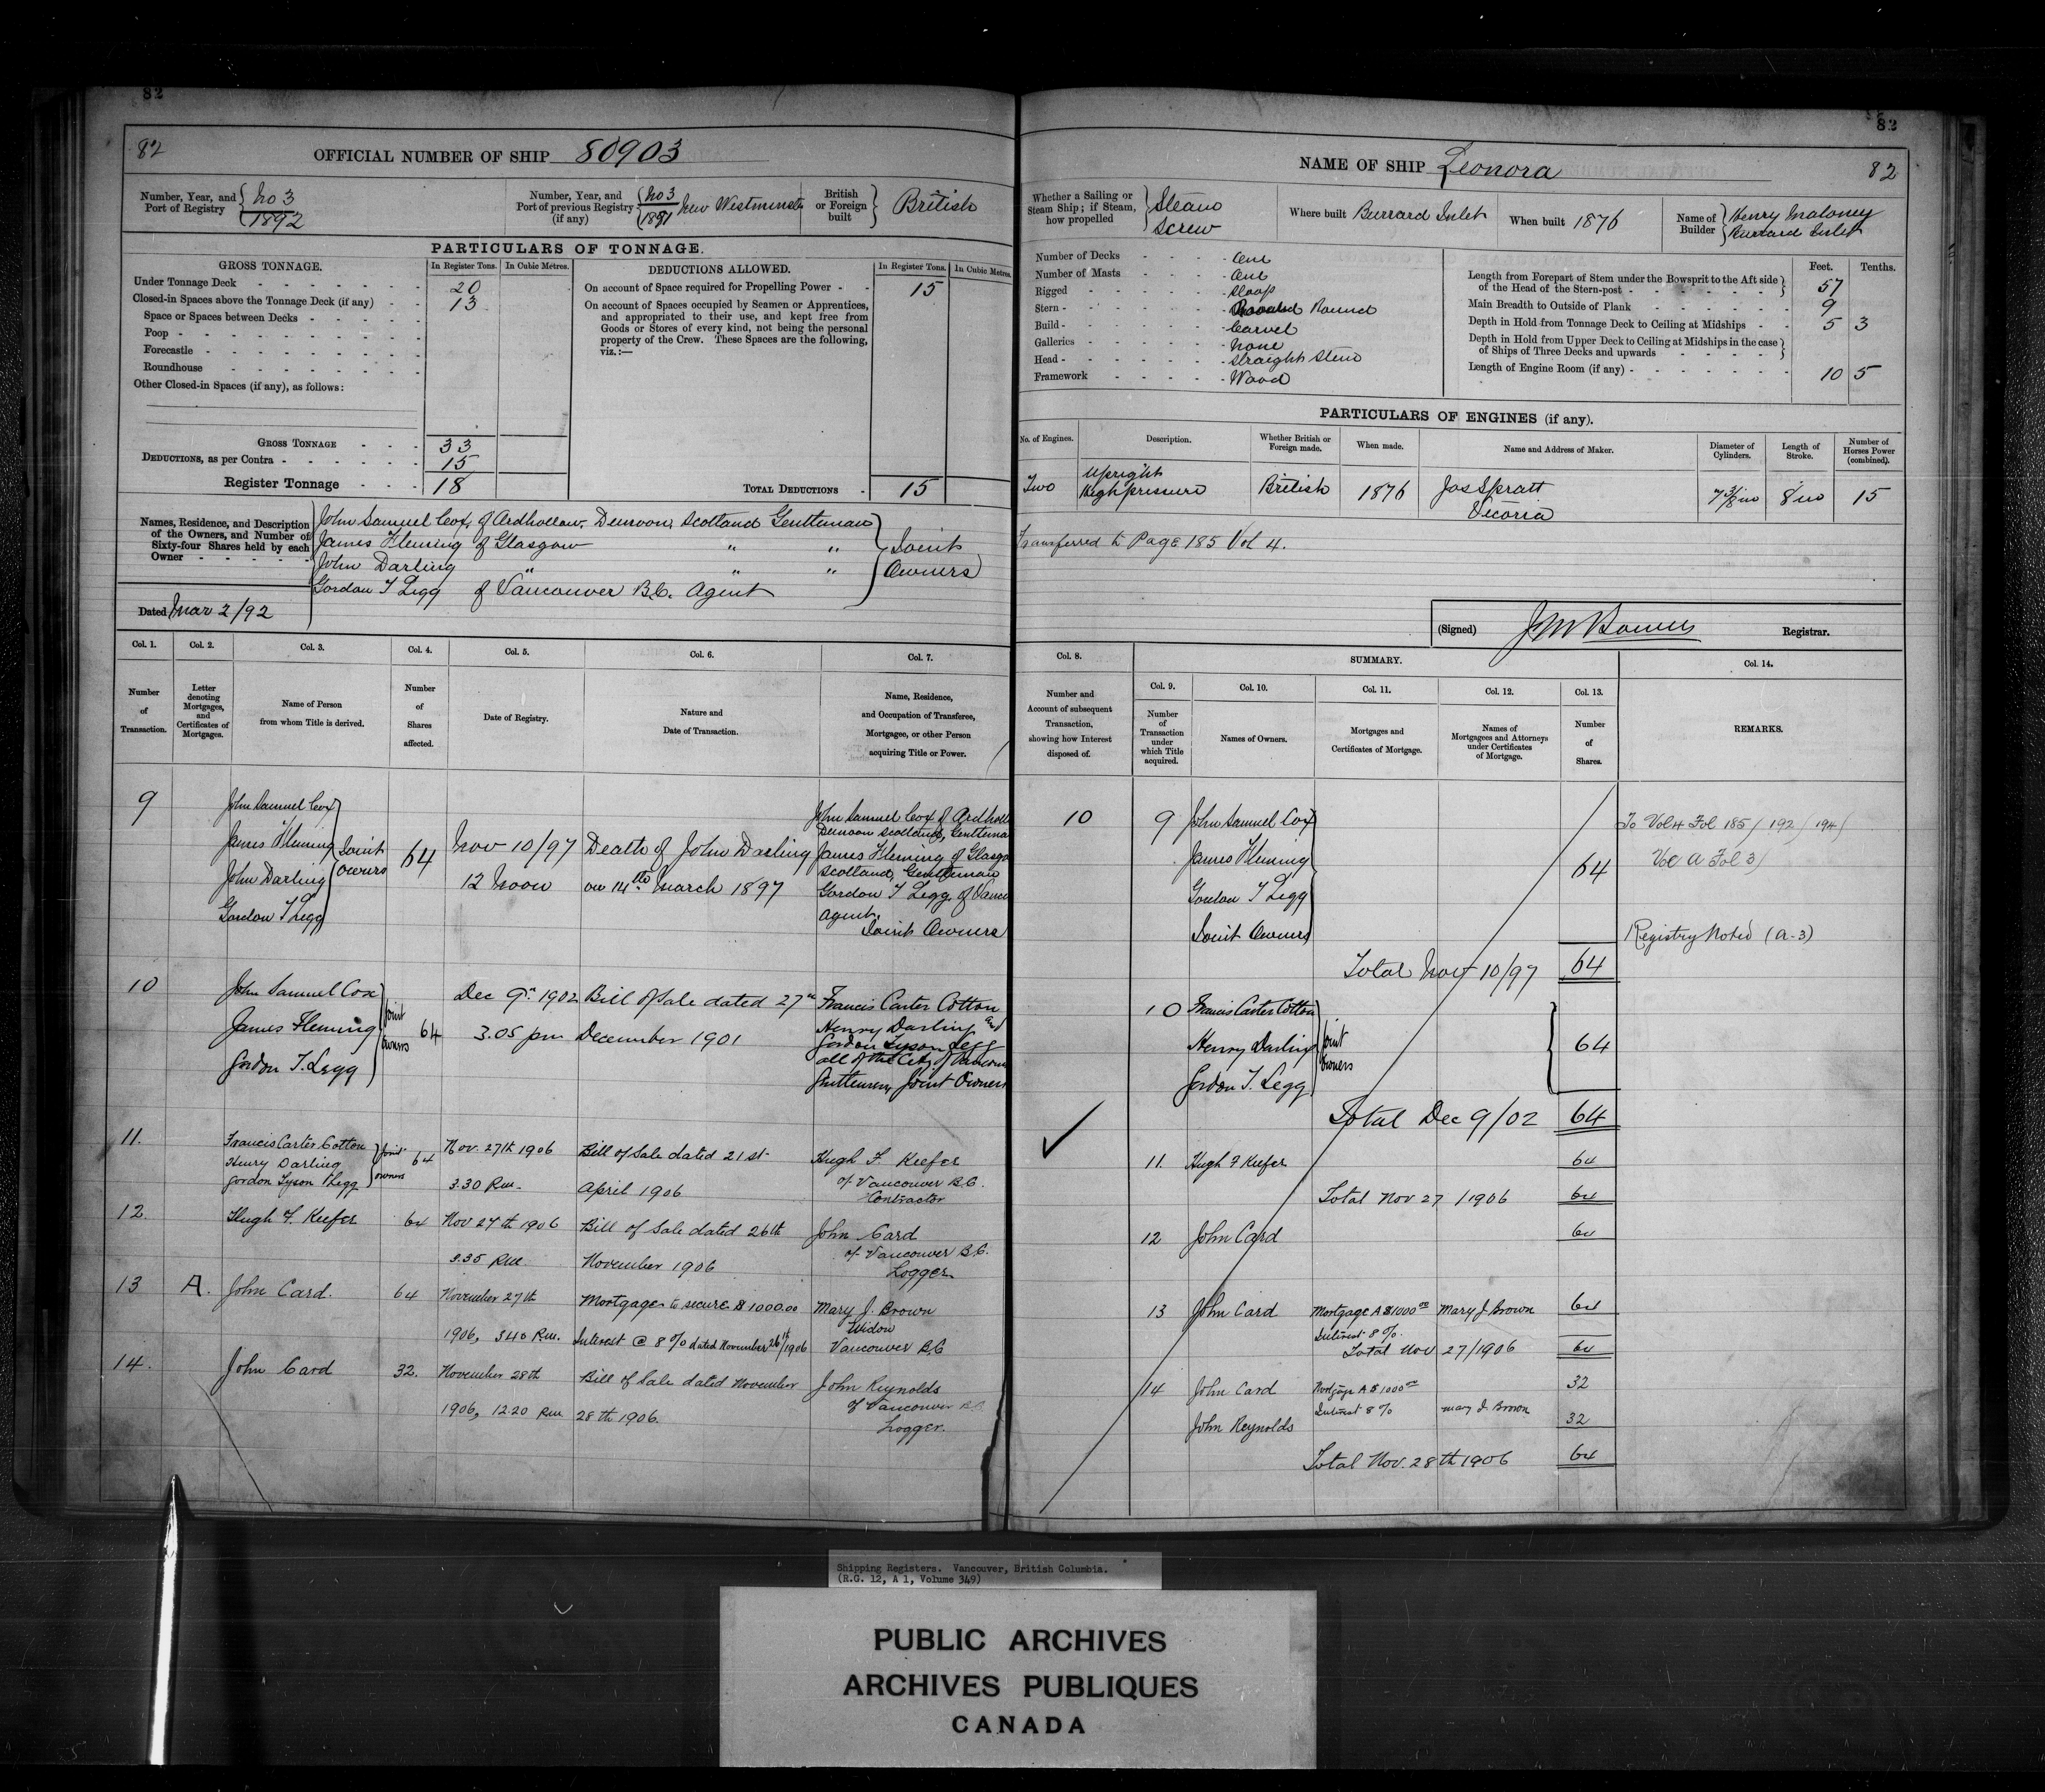 82
82
OFFICIAL NUMBER OF SHIP 80903
Number, Year, and Port of Registry No 3 1892
Number, Year, and Port of previous Registry (if any) No 3 1891 New Westminster
British or Foreign built British
PARTICULARS OF TONNAGE.
GROSS TONNAGE. In Register Tons. In Cubic Metres.
Under Tonnage Deck 20
Closed-in Spaces above the Tonnage Deck (if any) 13
Space or Spaces between Decks
Poop
Forecastle
Roundhouse
Other Closed-in Spaces (if any), as follows:
GROSS TONNAGE 33
DEDUCTIONS, as per Contra 15
Register Tonnage 18
DEDUCTIONS ALLOWED. In Register Tons. In Cubic Metres.
On account of Space required for Propelling Power 15
On account of Spaces occupied by Seamen or Apprentices,
and appropriated to their use, and kept free from
Goods or Stores of every kind, not being the personal
property of the Crew. These Spaces are the following,
viz.:—
TOTAL DEDUCTIONS 15
Names, Residence, and Description of the Owners, and Number of Sixty-four Shares held by each Owner
John Samuel Cox, of Ardhollow, Dunoon, Scotland Gentleman
James Fleming of Glasgow " "
John Darling " " "
Gordon T Legg of Vancouver B.C. Agent
Joint Owners
Dated Mar 2/92
Col. 1. Col. 2. Col. 3. Col. 4. Col. 5. Col. 6. Col. 7.
Number of Transaction.
Letter denoting Mortgages, and Certificates of Mortgages.
Name of Person from whom Title is derived.
Number of Shares affected.
Date of Registry.
Nature and Date of Transaction.
Name, Residence, and Occupation of Transferee, Mortgagee, or other Person acquiring Title or Power.
9
John Samuel Cox
James Fleming
John Darling
Gordon T Legg
Joint owners
64
Nov 10/97
12 Noon
Death of John Darling
on 14th March 1897
John Samuel Cox of Ardhollow
Dunoon Scotland, Gentleman
James Fleming of Glasgow
Scotland, Gentleman
Gordon T Legg, of Vanc
Agent.
Joint Owners
10
John Samuel Cox
James Fleming
Gordon T. Legg
Joint owners
64
Dec 9th 1902
3.05 pm
Bill of Sale dated 27th
December 1901
Francis Carter Cotton
Henry Darling and
Gordon Tyson Legg
all of the City of Vancouver
Gentlemen, Joint Owners
11.
Francis Carter Cotton
Henry Darling
Gordon Tyson Legg
joint owners
64
Nov. 27th 1906
3.30 P.m.
Bill of Sale dated 21st
April 1906
Hugh F. Keefer
of Vancouver B.C.
Contractor
12
Hugh F. Keefer
64
Nov 27th 1906
3.35 P.m.
Bill of Sale dated 26th
November 1906
John Card
of Vancouver B.C.
Logger
13
A.
John Card.
64
November 27th
1906, 3.40 P.m.
Mortgage to secure $1000.00
Interest @ 8% dated November 26th/1906
Mary J. Brown
Widow
Vancouver B.C
14.
John Card
32.
November 28th
1906, 12.20 P.m
Bill of Sale dated November
28th 1906.
John Reynolds
of Vancouver B.C.
Logger.
82
NAME OF SHIP Leonora
82
Whether a Sailing or Steam Ship; if Steam, how propelled Steam Screw
Where built Burrard Inlet
When built 1876
Name of Builder Henry Maloney Burrard Inlet
Number of Decks One
Number of Masts One
Rigged Sloop
Stern Round
Build Carvel
Galleries None
Head Straight Stem
Framework Wood
Feet. Tenths.
Length from Forepart of Stem under the Bowsprit to the Aft side of the Head of the Stern-post 57
Main Breadth to Outside of Plank 9
Depth in Hold from Tonnage Deck to Ceiling at Midships 5 3
Depth in Hold from Upper Deck to Ceiling at Midships in the case of Ships of Three Decks and upwards
Length of Engine Room (if any) 10 5
PARTICULARS OF ENGINES (if any).
No. of Engines. Description. Whether British or Foreign made. When made. Name and Address of Maker. Diameter of Cylinders. Length of Stroke. Number of Horses Power (combined).
Two
Upright
High pressure
British
1876
Jos Spratt
Victoria
7 3/8 in
8 in
15
Transferred to Page 185 Vol 4.
(Signed) J M Bowers Registrar.
Col. 8. SUMMARY. Col. 14.
Col. 9. Col. 10. Col. 11. Col. 12. Col. 13.
Number and Account of subsequent Transaction, showing how Interest disposed of.
Number of Transaction under which Title acquired.
Names of Owners.
Mortgages and Certificates of Mortgage.
Names of Mortgagees and Attorneys under Certificates of Mortgage.
Number of Shares.
REMARKS.
10
9
John Samuel Cox
James Fleming
Gordon T Legg
Joint Owners
64
Total Nov 10/97 64
To Vol 4 Fol 185/192/194/
Vol A Fol 3/
Registry Noted (A-3)
10
Francis Carter Cotton
Henry Darling
Gordon T. Legg
joint owners
64
Total Dec 9/02 64
11. Hugh F Keefer 64
Total Nov 27/1906 64
12 John Card 64
13 John Card Mortgage A $1000.00 Mary J Brown 64
Interest 8%.
Total Nov 27/1906 64
14 John Card Mortgage A $1000.00 32
Interest 8% Mary J. Brown
John Reynolds 32
Total Nov. 28th 1906 64
Shipping Registers. Vancouver, British Columbia.
(R.G. 12, A 1, Volume 349)
PUBLIC ARCHIVES
ARCHIVES PUBLIQUES
CANADA